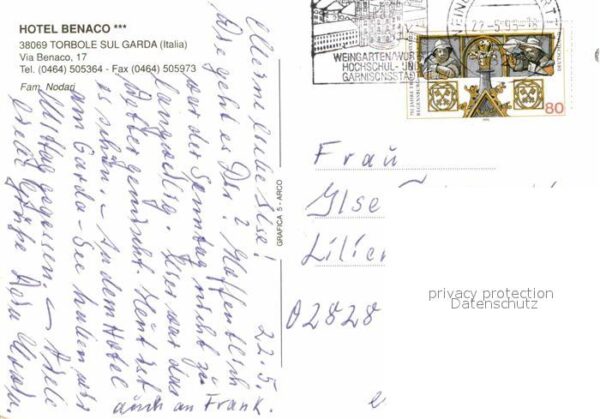 HOTEL BENACO ***
38069 TORBOLE SUL GARDA (Italia)
Via Benaco, 17
Tel. (0464) 505364 - Fax (0464) 505973
Fam. Nodari
22.5.
Meine liebe Ilse!
Wie geht es Dir? Hoffentlich
war der Sonntag nicht zu
langweilig. Hier war das
Wetter gemischt. Heut ist
es schön. – In dem Hotel
am Garda-See haben wir
Mittag gegessen. – Viele
liebe Grüße Deine
auch an Frank.
GRAFICA 5 - ARCO
WEINGARTEN
22-5-95-18
WEINGARTEN WÜRTT
HOCHSCHUL- UND
GARNISONSSTADT
80
Frau
Ilse
Lilien
02828
privacy protection
Datenschutz